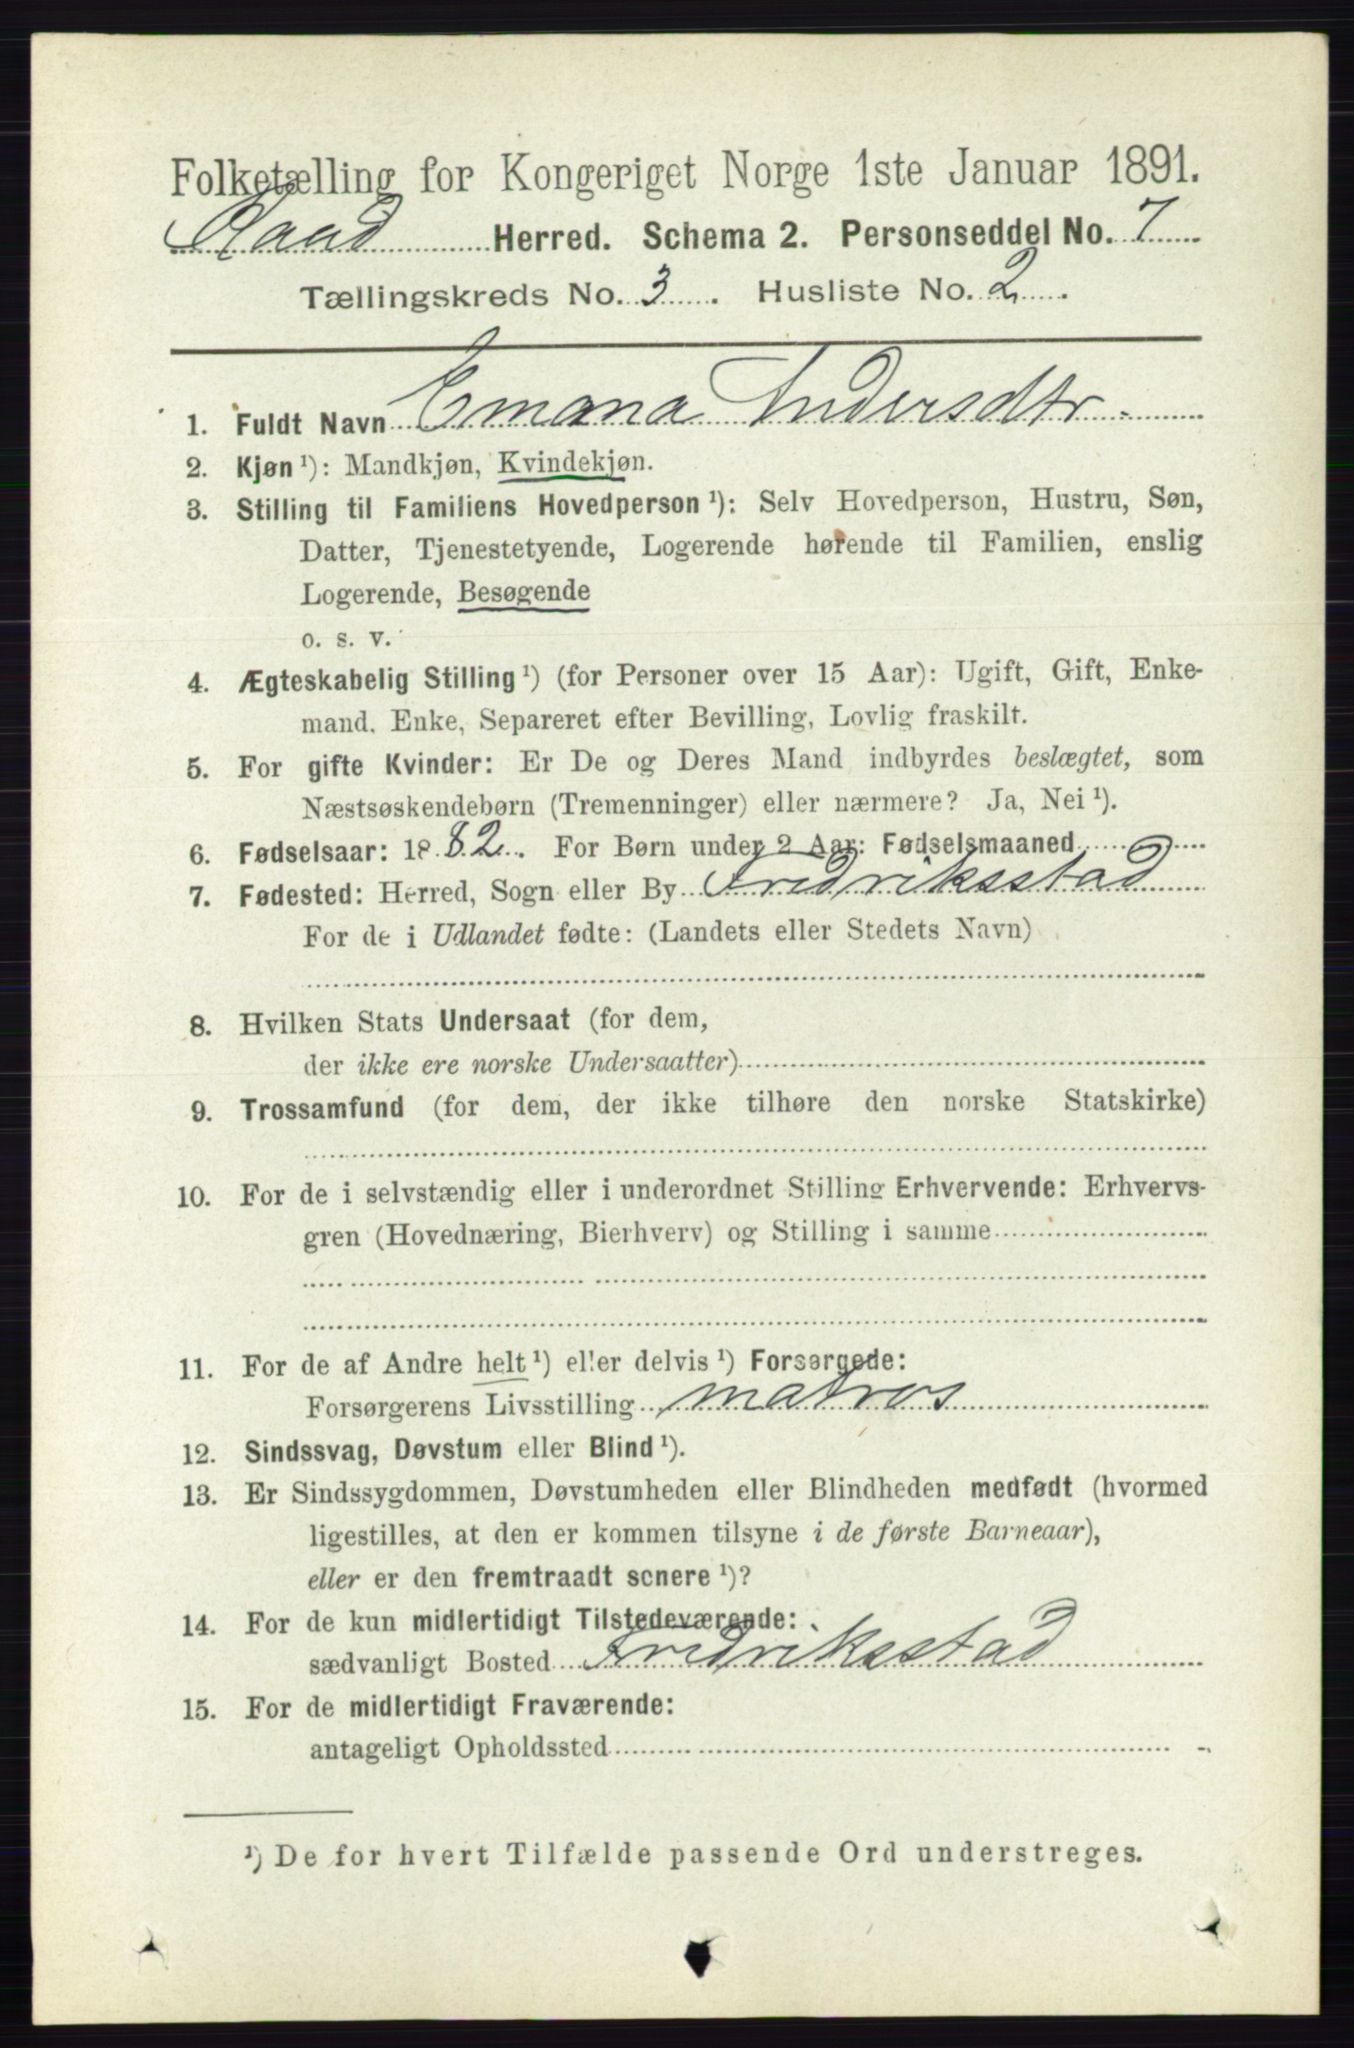 Folketælling for Kongeriget Norge 1ste Januar 1891.
Raad Herred. Schema 2. Personseddel No. 7
Tællingskreds No. 3. Husliste No. 2.
1. Fuldt Navn Emana Andersdtr.
2. Kjøn ¹): Mandkjøn, Kvindekjøn.
3. Stilling til Familiens Hovedperson ¹): Selv Hovedperson, Hustru, Søn,
Datter, Tjenestetyende, Logerende hørende til Familien, enslig
Logerende, Besøgende
o. s. v.
4. Ægteskabelig Stilling ¹) (for Personer over 15 Aar): Ugift, Gift, Enke-
mand, Enke, Separeret efter Bevilling, Lovlig fraskilt.
5. For gifte Kvinder: Er De og Deres Mand indbyrdes beslægtet, som
Næstsøskendebørn (Tremenninger) eller nærmere? Ja, Nei ¹).
6. Fødselsaar: 1882. For Børn under 2 Aar: Fødselsmaaned
7. Fødested: Herred, Sogn eller By Fredriksstad
For de i Udlandet fødte: (Landets eller Stedets Navn)
8. Hvilken Stats Undersaat (for dem,
der ikke ere norske Undersaatter)
9. Trossamfund (for dem, der ikke tilhøre den norske Statskirke)
10. For de i selvstændig eller i underordnet Stilling Erhvervende: Erhvervs-
gren (Hovednæring, Bierhverv) og Stilling i samme
11. For de af Andre helt ¹) eller delvis ¹) Forsørgede:
Forsørgerens Livsstilling matros
12. Sindssvag, Døvstum eller Blind ¹).
13. Er Sindssygdommen, Døvstumheden eller Blindheden medfødt (hvormed
ligestilles, at den er kommen tilsyne i de første Barneaar),
eller er den fremtraadt senere ¹)?
14. For de kun midlertidigt Tilstedeværende:
sædvanligt Bosted Fredriksstad
15. For de midlertidigt Fraværende:
antageligt Opholdssted
¹) De for hvert Tilfælde passende Ord understreges.